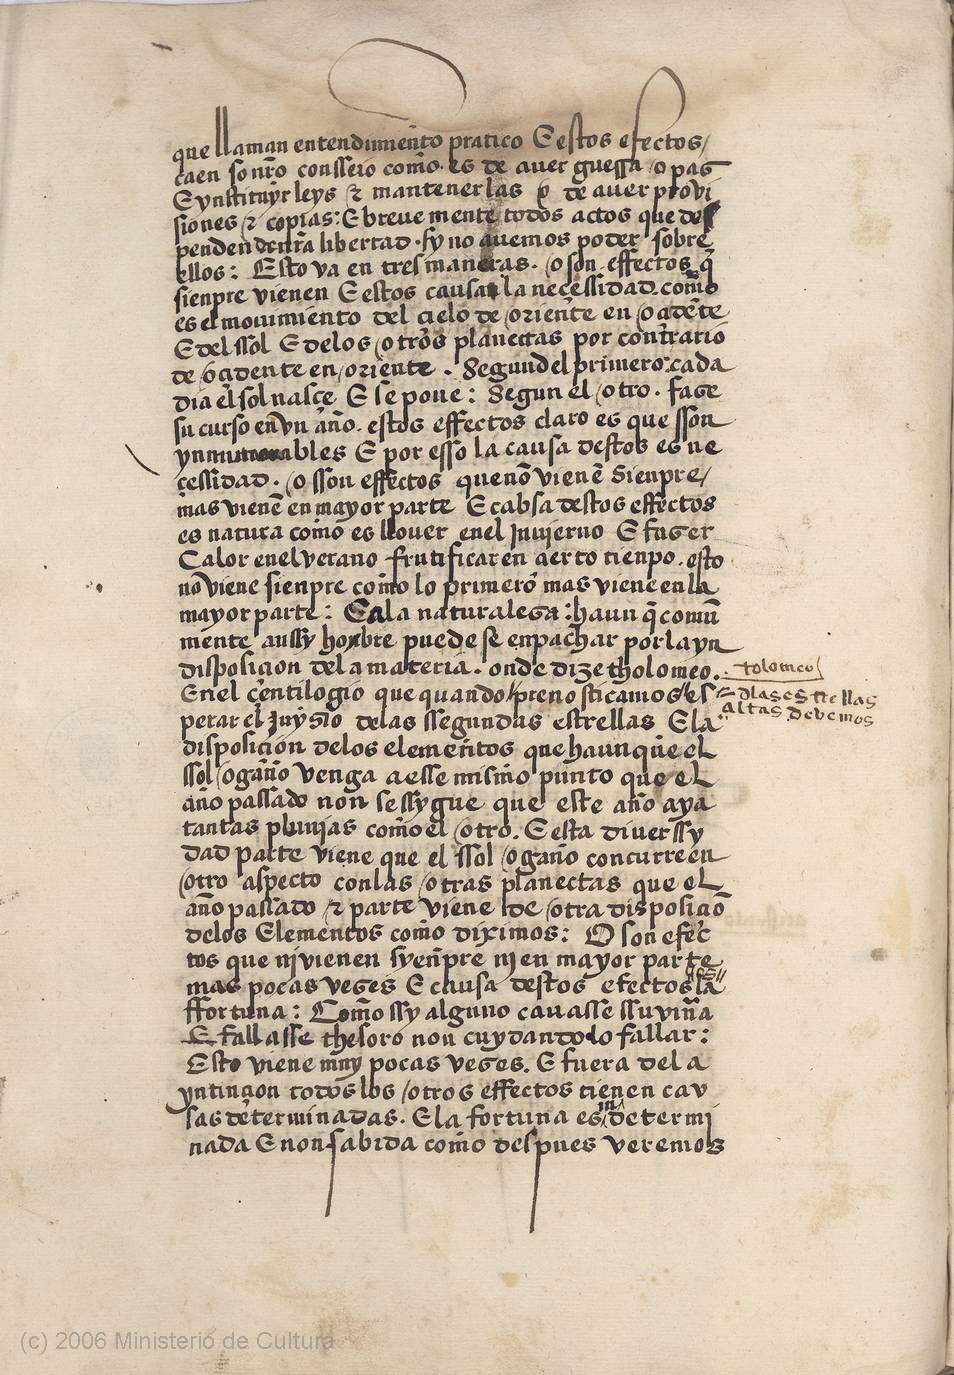 que llaman entendimiento pratico E estos efectos/
caen so nro conssejo como es de aver guerra o paz
E ynstituyr leys & mantener las o de aver provi
siones & copias: E breve mente todos actos que des
penden denra libertad. sy no avemos poder sobre
ellos: Esto va en tres maneras. /o son effectos q̃
sienpre vienen E estos causa la necessidad como
es el movimiento del cielo de /oriente en /ocidẽte
E del ssol E delos /otros planectas por contrario
de /ocidente en /oriente. Segund el primero: cada
dia el sol nasçe E se pone: Segun el /otro. faze
su curso en vn año. estos effectos claro es que sson
ynmutables E por esso la causa destos es ne
çessidad. /o sson effectos que nõ vienẽ sienpre/
mas vienẽ en mayor parte E cabsa destos effectos
es natura como es llover enel jnvierno E fazer
Calor enel verano frutificar en cierto tienpo. esto
nõ viene sienpre como lo primero mas viene en la
mayor parte: Ca la naturaleza: haun q̃ comũ
mente aussy honbre puede se enpachar por la yn
disposicion dela materia. onde dize tholomeo.
tolomeo
Enel çentilogio que quando /prenosticamos es
= dlas estrellas
altas devemos
perar el juyzio delas ssegundas estrellas E la
disposiçión delos elementos que haun que el
ssol /ogaño venga a esse mismo punto que el
año passado non se ssygue que este año aya
tantas pluvias como el /otro. E esta diverssy
dad parte viene que el ssol /ogaño concurre en
/otro aspecto con las /otras planectas que el
año passado & parte viene de /otra disposiciõ
delos Elementos como diximos: O son efec
tos que nj vienen syenpre nj en mayor parte
mas pocas vezes E causa destos efectos es la
ffortuna: Como ssy alguno cavasse ssu viña
E fallasse thesoro non cuydando lo fallar:
Esto viene muy pocas vezes. E fuera dela
yntinçion todos los /otros effectos tienen cav
sas determinadas. E la fortuna es indetermi
nada E non sabida como despues veremos
(c) 2006 Ministerio de Cultura